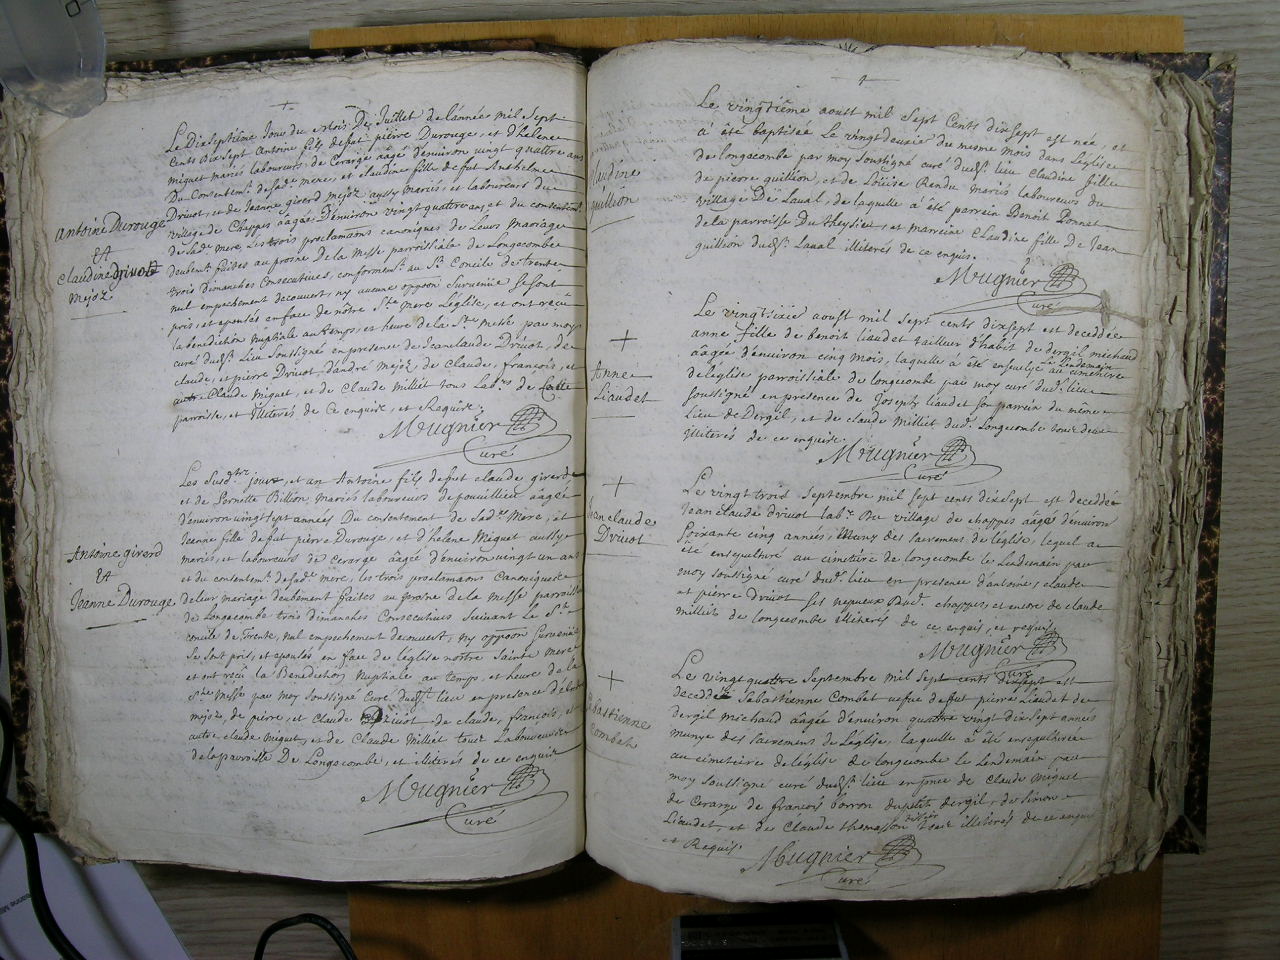 Le Dixseptiême Jour du Mois De Juillet de l'année mil Sept
Cents Dixsept Antoine fils defut pierre Durouge, et d'helene
miguet mariés laboureurs de Cerarge aâgé d'environ vingt quattre ans
Du Consentemt. de sade. mere, et claudine fille defut Anthelme
Drivot, et de Jeanne girerd mejoz aussy mariés, et laboureurs du
village de Chappes aâgée D'environ vingt quattre ans et du consentemt.
de sad. mere, Les trois proclamaons canoniques de Leurs Mariage
deubemt. faites au prosne de la Messe parroissiale de Longecombe
trois Dimanches Consecutives, conformemt. au St. Concile de trente
nul empechement decouvert, ny aucune oppoon Survenüe Se sont
pris, et epousés en face de nôtre Ste. mere L'église, et ont reçû
la benediction Nuptiale au temps, et heure de la Ste. Messe par moy
curé dudst. Lieu Soussigné en presence de Jean claude Drivot, de
claude, et pierre Drivot, d'andré mejoz de Claude, françois, et
autre Claude Miguet, et de Claude Milliet tous Labrs. de
parroisse, et illiterés de Ce enquis, et Requis.
Mugnier
Curé
Antoine Durouge
Et
Claudine Drivot
Mejoz
Les Susdtz. jour, et an Antoine fils defut claude girerd
et de Pernette Billion mariés laboureurs de pouillieu aâgé
d'environ vingt sept années Du consentement de sade. Mere, et
Jeanne fille de fut pierre Durouge, et d'helene Miguet aussy
mariés, et laboureurs de Cerarge aâgée d'environ vingt un ans
et du consentemt. de sade. mere, les trois proclamaons Canoniques
de leur mariage deubement faites au prosne de la messe parroissle
de Longecombe trois dimanches Consecutives Suivant Le St.
concile de Trente, nul empechement decouvert, ny oppoon Survenüe
Se sont pris, et epousés en face de l'église nottre Sainte mere
et ont reçû la Benediction Nuptiale au temps, et heure de la
Ste. Messe par moy soussigné Curé dudst. lieu en presence d'
mejoz, de pierre, et Claude Drivot, de claude, françois, et
autre claude Miguet, et de Claude Milliet tous Laboureurs
de la parroisse De Longecombe, et illiterés de ce enquis
Mugnier
Curé
Antoine girerd
Et
Jeanne Durouge
Le vingtième aoust mil Sept Cents dixsept est née, et
à été baptisée Le vingt deuxie du mesme mois dans L'église
de longecombe par moy Soustigné curé dudst. lieu Claudine fille
de pierre guillion, et de Loüise Rendu mariés laboureurs du
village De Laval, de laquelle à été parrein Benoit Bonnet
de la parroisse Du theysieu, et marreine Claudine fille de Jean
guillion dudst. Laval illiterés de ce enquis.
Mugnier
Curé
Claudine
guillion
Le vingtsixie aoust mil sept cents dixsept est deceddée
anne fille de benoit liaudet tailleur d'habit de dergil michaud
aâgée d'environ cinq mois, laquelle à été ensepulyé Lendemain au cimetiere
de l'église parroissiale de longecombe par moy curé dud. lieu
soustigné en presence de Joseph liaudet son parrein du meme
Lieu de Dergil, et de claude Milliet dud. Longecombe tous deux
illiterés de ce enquis.
Mugnier
Curé
Anne
Liaudet
Le vingt trois Septembre mil sept cents dixsept est deceddé
Jean claude drivot labr. Du village de chappes aâgé d'environ
Soixante cinq années, Muny des sacremens de l'église, lequel a
été ensepulturé au cimetiére de longecombe le Lendemain par
moy soussigné curé dud. lieu en presence d'antoine, claude
et pierre drivot Ses nepueux dud. chappes, et encore de claude
milliet de longecombe illiterés de ce enquis, et requis.
Mugnier
Curé
Jean claude
Drivot
Le vingt quattre Septembre mil sept cents dixsept est
deceddée Sebastienne Combet vefue defut pierre Liaudet de
dergil michaud aâgée d'environ quattre vingt dixsept années
munye des sacremens de L'église, laquelle à été ensepulturée
au cimetiére de l'église de longecombe le Lendemain par
moy soustigné curé dudst. lieu en pnce de Claude Miguet
de Cerarge de françois borron du petit dergil, de Simon
Liaudet, et de Claude thomasson tous illiterés de ce enquis
et Requis.
Mugnier
Curé
Sebastienne
Combet